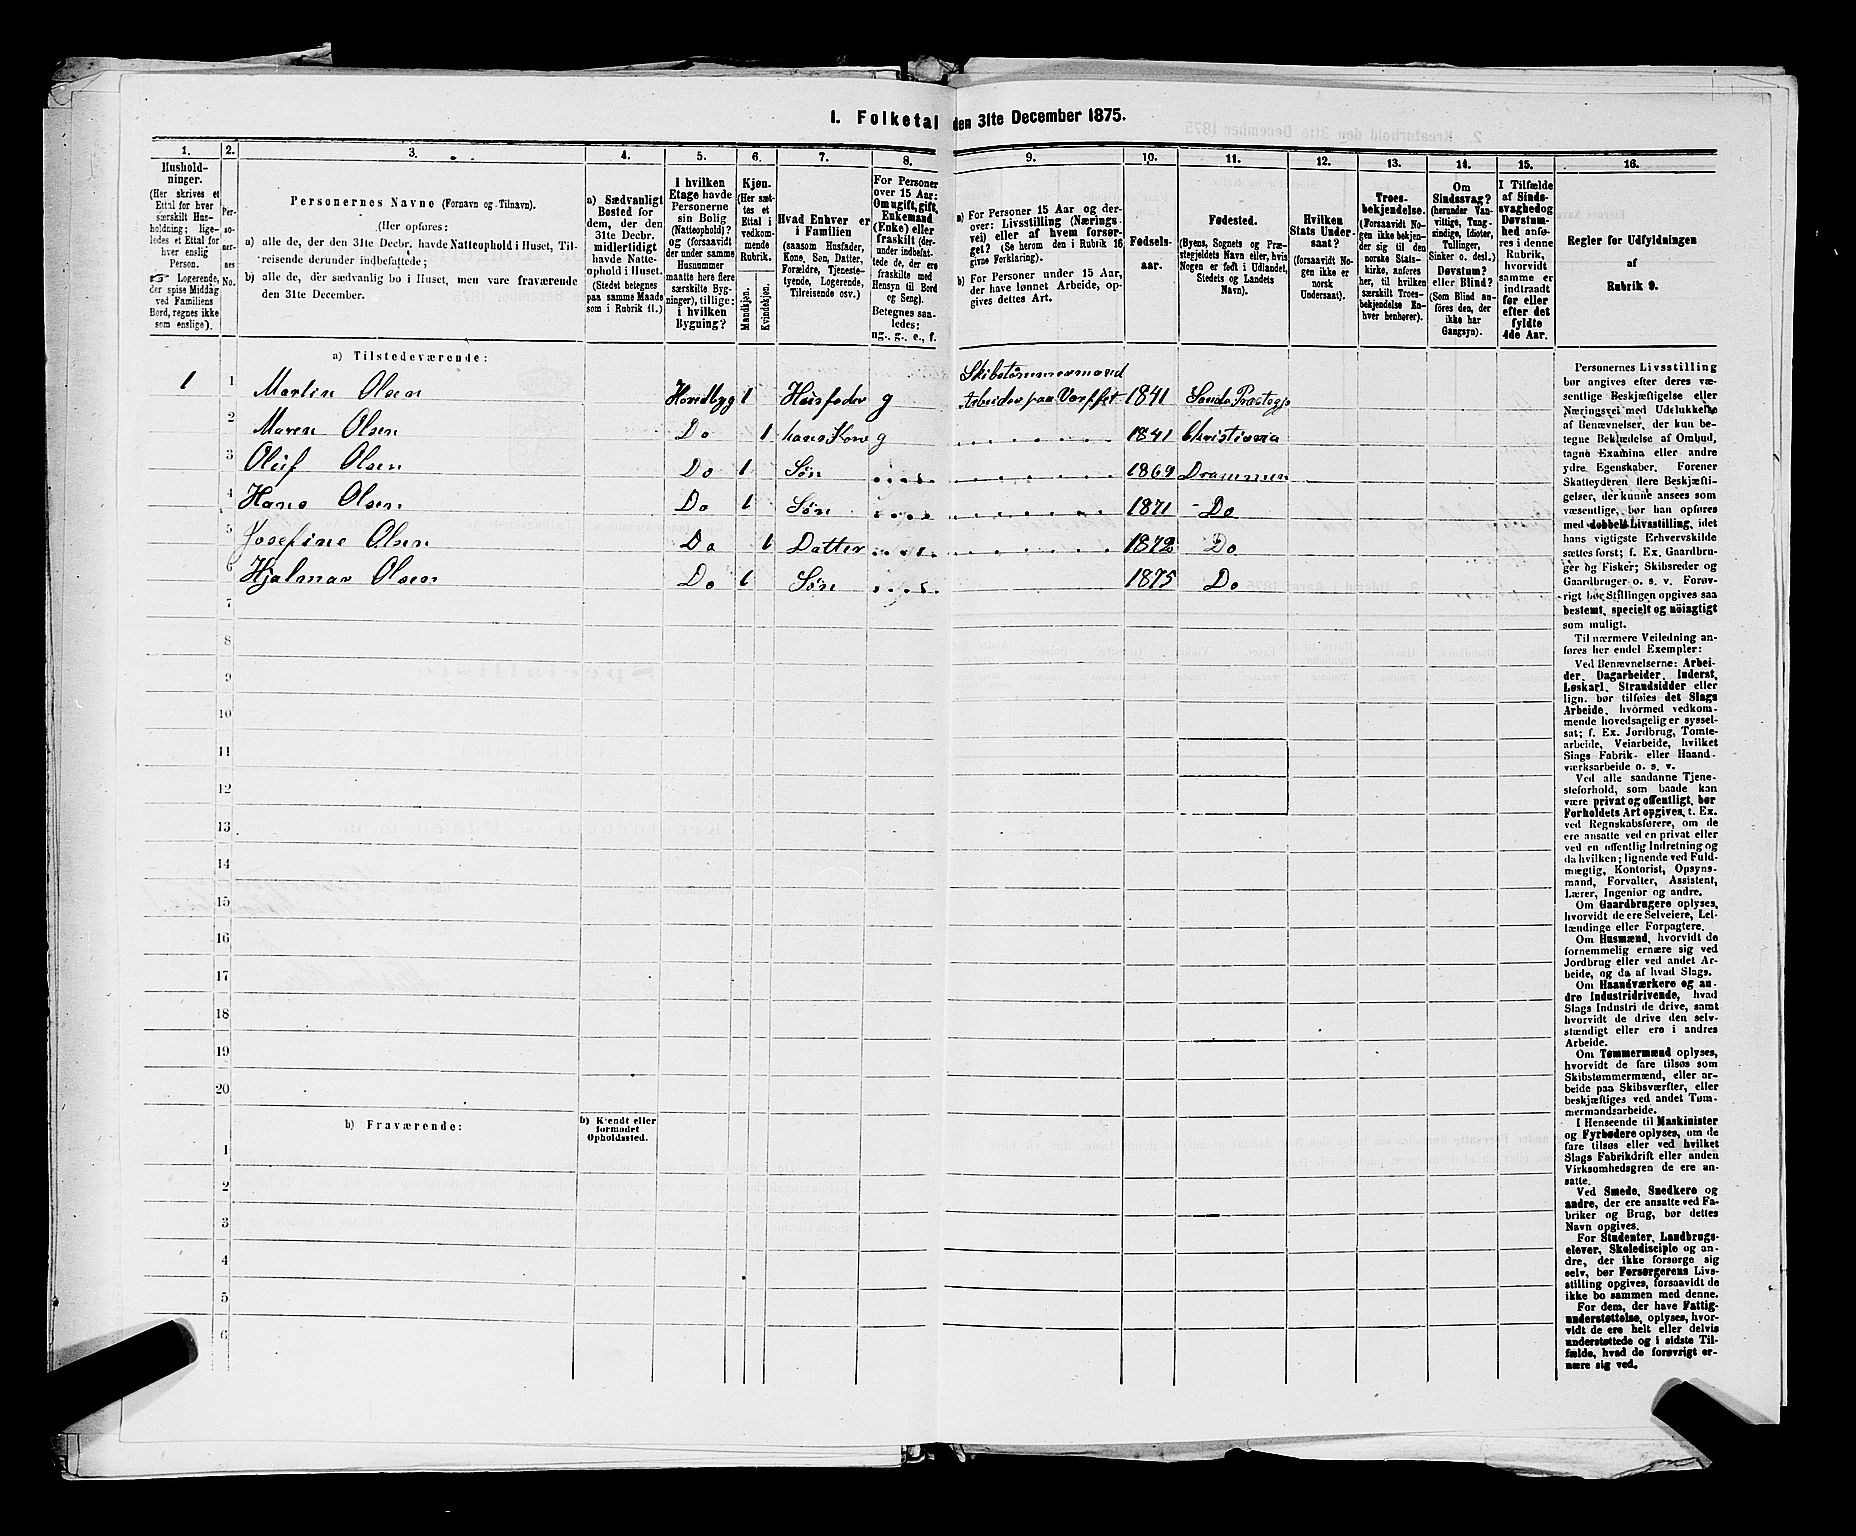 I. Folketal den 31te December 1875.
1. 2. 3. 4. 5. 6. 7. 8. 9. 10. 11. 12. 13. 14. 15. 16.
Hushold-
ninger.
(Her skrives et
Ettal for hver
særskilt Hus-
holdning; lige-
ledes et Ettal for
hver enslig
Person.
☞ Logerende,
der spise Middag
ved Familiens
Bord, regnes ikke
som enslige).
Per-
so-
ner-
nes
No.
Personernes Navne (Fornavn og Tilnavn).
(Her opføres:
a) alle de, der den 31te Decbr. havde Natteophold i Huset, Til-
reisende derunder indbefattede;
b) alle de, der sædvanlig bo i Huset, men vare fraværende
den 31te December.
a) Sædvanligt
Bosted for
dem, der den
31te Decbr.
midlertidigt
havde Natte-
ophold i Huset.
(Stedet betegnes
paa samme Maade
som i Rubrik 11.)
I hvilken
Etage havde
Personerne
sin Bolig
(Natteophold)?
og (forsaavidt
der under samme
Husnummer
maatte høre flere
særskilte Byg-
ninger), tillige:
i hvilken
Bygning?
Kjøn.
(Her sæt-
tes et
Ettal i
vedkom-
mende
Rubrik.
Mandkjøn.
Kvindekjøn.
Hvad Enhver er
i Familien
(saasom Husfader,
Kone, Søn, Datter,
Forældre, Tjeneste-
tyende, Logerende,
Tilreisende osv.)
For Personer
over 15 Aar:
Om ugift, gift,
Enkemand
(Enke) eller
fraskilt (der-
under indbefat-
tede de, der ere
fraskilte med
Hensyn til Bord
og Seng).
Betegnes saa-
ledes:
ug., g., e., f.
a) For Personer 15 Aar og der-
over: Livsstilling (Nærings-
vei) eller af hvem forsør-
get? (Se herom den i Rubrik 16
givne Forklaring).
b) For Personer under 15 Aar,
der have lønnet Arbeide, op-
gives dettes Art.
Fødsels-
aar.
Fødested.
(Byens, Sognets og Præ-
stegjeldets Navn eller, hvis
Nogen er født i Udlandet,
Stedets og Landets
Navn).
Hvilken
Stats Under-
saat?
(forsaavidt No-
gen ikke er
norsk
Undersaat).
Troes-
bekjendelse.
(Forsaavidt No-
gen ikke bekjen-
der sig til den
norske Stats-
kirke, anføres
her, til hvilken
særskilt Troes-
bekjendelse En-
hver henhører).
Om
Sindssvag?
(herunder Van-
vittige, Tung-
sindige, Idioter,
Tullinger,
Sinker o. desl.)
Døvstum?
eller Blind?
(Som Blind an-
føres den, der
ikke har
Gangsyn).
I Tilfælde
af Sinds-
svaghed og
Døvstum-
hed anfø-
res i denne
Rubrik,
hvorvidt
samme er
indtraadt
før eller
efter det
fyldte
4de Aar.
Regler for Udfyldningen
af
Rubrik 9.
a) Tilstedeværende:
Skibstömmermand
1 1 Martin Olsen Hovedbyg 1 Husfader g Arbeider paa Verfftet 1841 Sande Præstegj
2 Maren Olsen Do 1 hans Kone g 1841 Christiania
3 Oluf Olsen Do 1 Søn 1869 Drammen
4 Hans Olsen Do 1 Søn 1871 - Do
5 Josefine Olsen Do 1 Datter 1872 Do
6 Hjalmar Olsen Do 1 Søn 1875 Do
7
8
9
10
11
12
13
14
15
16
17
18
19
20
b) Fraværende:
b) Kjendt eller
formodet
Opholdssted.
1
2
3
4
5
6
Personernes Livsstilling
bør angives efter deres væ-
sentlige Beskjæftigelse eller
Næringsvei med Udelukkelse
af Benævnelser, der kun be-
tegne Beklædelse af Ombud,
tagne Examina eller andre
ydre Egenskaber. Forener
Skatteyderen flere Beskjæfti-
gelser, der kunne ansees som
væsentlige, bør han opføres
med dobbelt Livsstilling, idet
hans vigtigste Erhvervskilde
sættes først; f. Ex. Gaardbru-
ger og Fisker; Skibsreder og
Gaardbruger o. s. v. Forøv-
rigt bør Stillingen opgives saa
bestemt, specielt og nöiagtigt
som muligt.
Til nærmere Veiledning an-
føres her endel Exempler:
Ved Benævnelserne: Arbei-
der, Dagarbeider, Inderst,
Løskarl, Strandsidder eller
lign. bør tilføies det Slags
Arbeide, hvormed vedkom-
mende hovedsagelig er syssel-
sat; f. Ex. Jordbrug, Tomte-
arbeide, Veiarbeide, hvilket
Slags Fabrik- eller Haand-
værksarbeide o. s. v.
Ved alle saadanne Tjene-
steforhold, som baade kan
være privat og offentligt, bør
Forholdets Art opgives, t. Ex.
ved Regnskabsførere, om de
ere ansatte ved en privat eller
ved en offentlig Indretning og
da hvilken; lignende ved Fuld-
mægtig, Kontorist, Opsyns-
mand, Forvalter, Assistent,
Lærer, Ingeniør og andre.
Om Gaardbrugere oplyses,
hvorvidt de ere Selveiere, Lei-
lændinge eller Forpagtere.
Om Husmænd, hvorvidt de
fornemmelig ernære sig ved
Jordbrug eller ved andet Ar-
beide, og da af hvad Slags.
Om Haandværkere og an-
dre Industridrivende, hvad
Slags Industri de drive, samt
hvorvidt de drive den selv-
stændigt eller ere i andres
Arbeide.
Om Tømmermænd oplyses,
hvorvidt de fare tilsøs som
Skibstømmermænd, eller ar-
beide paa Skibsværfter, eller
beskjæftiges ved andet Tøm-
mermandsarbeide.
I Henseende til Maskinister
og Fyrbødere oplyses, om de
fare tilsøs eller ved hvilket
Slags Fabrikdrift eller anden
Virksomhedsgren de ere an-
satte.
Ved Smede, Snedkere og
andre, der ere ansatte ved Fa-
briker og Brug, bør dettes
Navn opgives.
For Studenter, Landbrugs-
elever, Skoledisciple og an-
dre, der ikke forsørge sig
selv, bør Forsørgerens Livs-
stilling opgives, forsaavidt de
ikke bo sammen med denne.
For dem, der have Fattig-
understøttelse, oplyses, hvor-
vidt de ere helt eller delvis
understøttede og i sidste Til-
fælde, hvad de forøvrigt er-
nære sig ved.